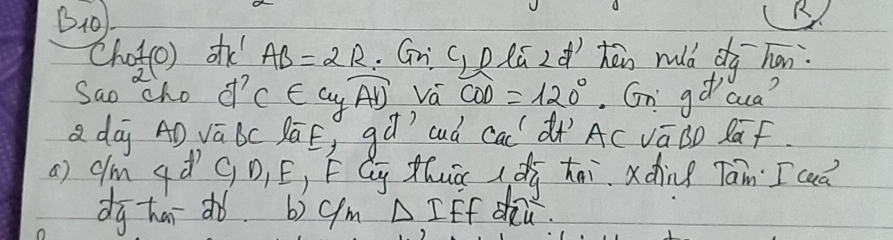 B10).
Cho ½(O) đk' AB = 2R. Gọi C, D là 2 đ' trên nửa đg tròn.
Sao cho đ' C ∈ cug AD và COD = 120°. Gọi gđ' của
2 dây AD và BC là E, gđ' của các đt' AC và BD là F.
a) c/m 4 đ' C, D, E, F cùg thuộc 1 đg tròn. xđịnh Tâm I của
đg tròn đó. b) c/m Δ IEF đều.
R.